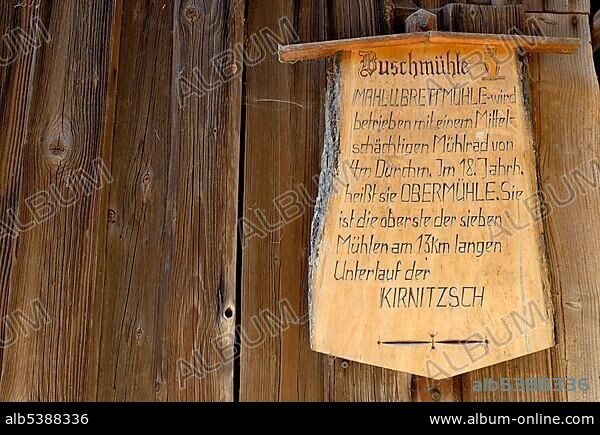 Buschmühle
MAHL U. BRETTMÜHLE - wird
betrieben mit einem Mittel-
schächtigen Mühlrad von
4m Durchm. Im 18. Jahrh.
heißt sie OBERMÜHLE. Sie
ist die oberste der sieben
Mühlen am 13km langen
Unterlauf der
KIRNITZSCH
alb5388336
alb5388336
www.album-online.com